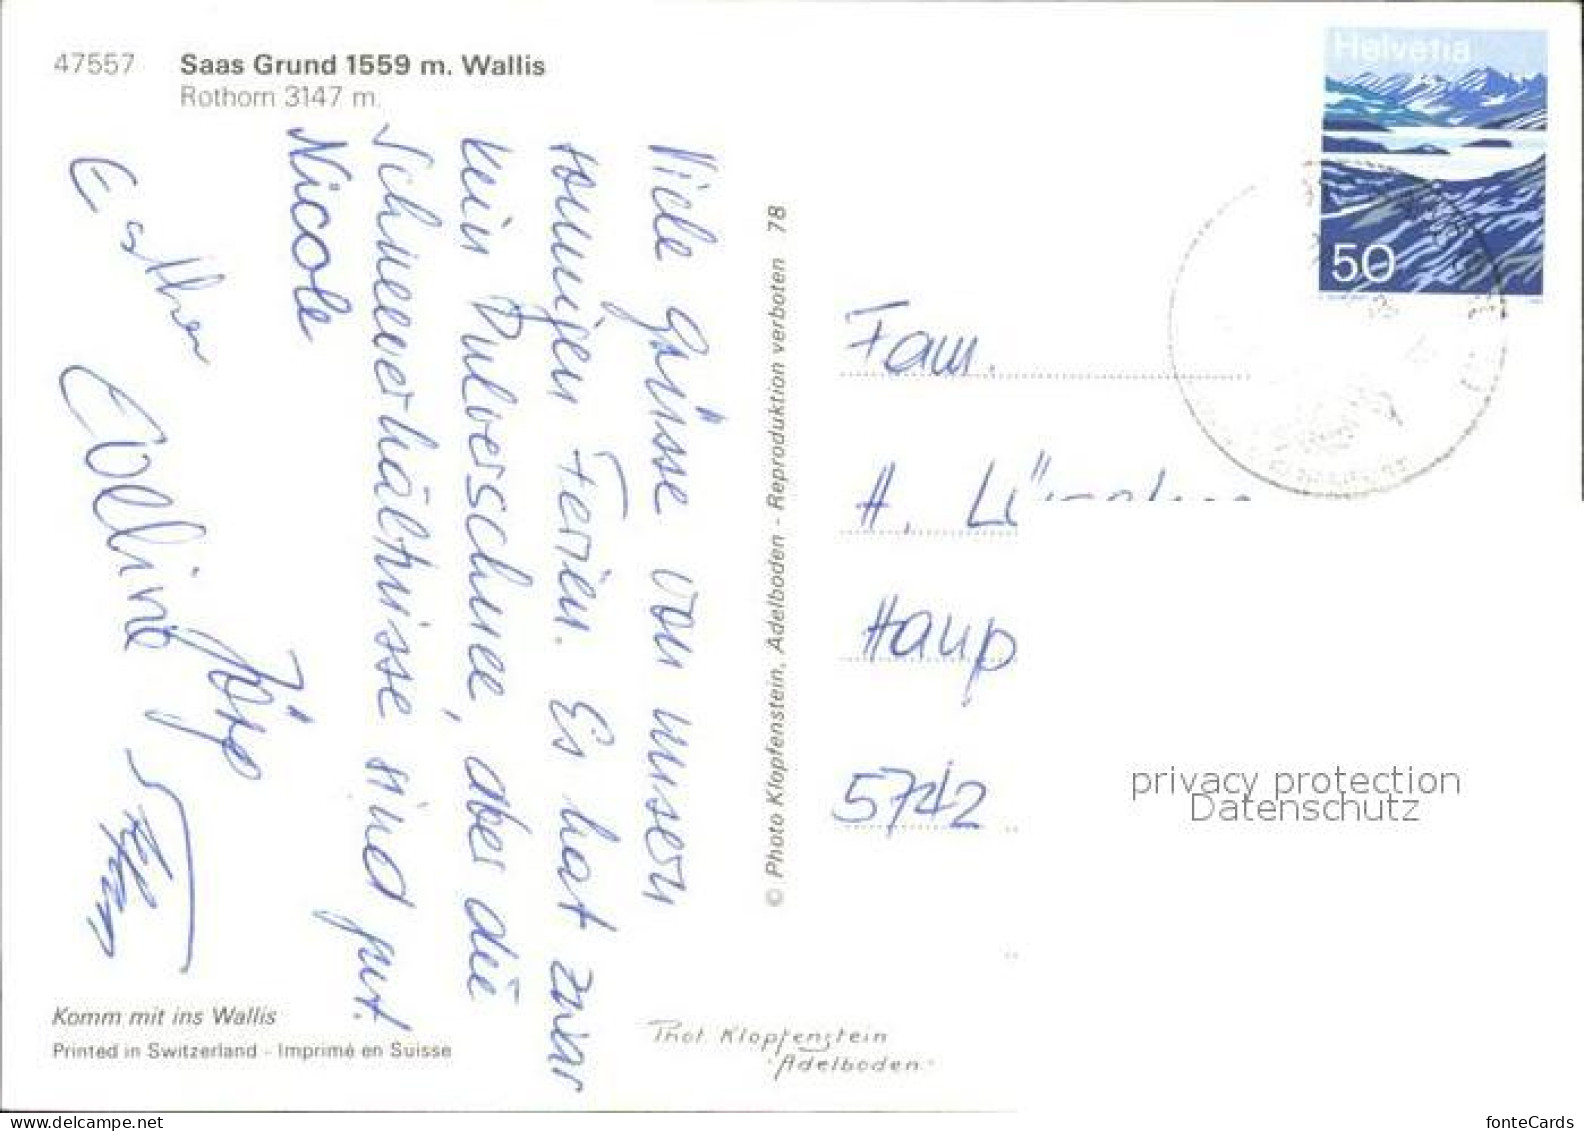 47557 Saas Grund 1559 m. Wallis
Rothorn 3147 m.
Viele Grüsse von unsern
sonnigen Ferien. Es hat zwar
kein Pulverschnee, aber die
Schneeverhältnisse sind gut!
Nicole
Esther
Eveline
Jürg
© Photo Klopfenstein, Adelboden - Reproduktion verboten 78
Helvetia
50
Fam.
H. Lü
Haup
5742
privacy protection
Datenschutz
Komm mit ins Wallis
Printed in Switzerland - Imprimé en Suisse
Phot. Klopfenstein
Adelboden.
fonteCards